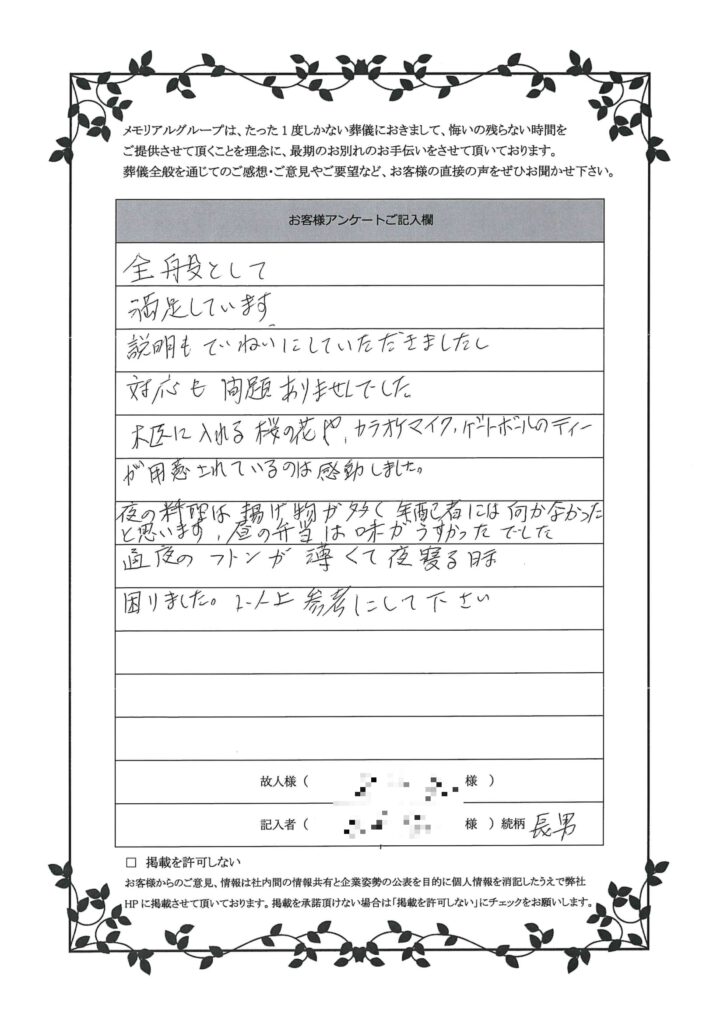 メモリアルグループは、たった1度しかない葬儀におきまして、悔いの残らない時間を
ご提供させて頂くことを理念に、最期のお別れのお手伝いをさせて頂いております。
葬儀全般を通じてのご感想・ご意見やご要望など、お客様の直接の声をぜひお聞かせ下さい。
お客様アンケートご記入欄
全般として
満足しています
説明もていねいにしていただきましたし
対応も問題ありませんでした
木医に入れる桜の花や、カラオケマイク、ゲートボールのティー
が用意されているのは感動しました。
夜の料理は揚げ物が多く年配者には向かなかった
と思います、昼の弁当は味がうすかったでした
通夜のフトンが薄くて夜寝る時
困りました。以上参考にして下さい
故人様（ 様 ）
記入者（ 様 ）続柄 長男
□ 掲載を許可しない
お客様からのご意見、情報は社内間の情報共有と企業姿勢の公表を目的に個人情報を消記したうえで弊社
HPに掲載させて頂いております。掲載を承諾頂けない場合は「掲載を許可しない」にチェックをお願いします。